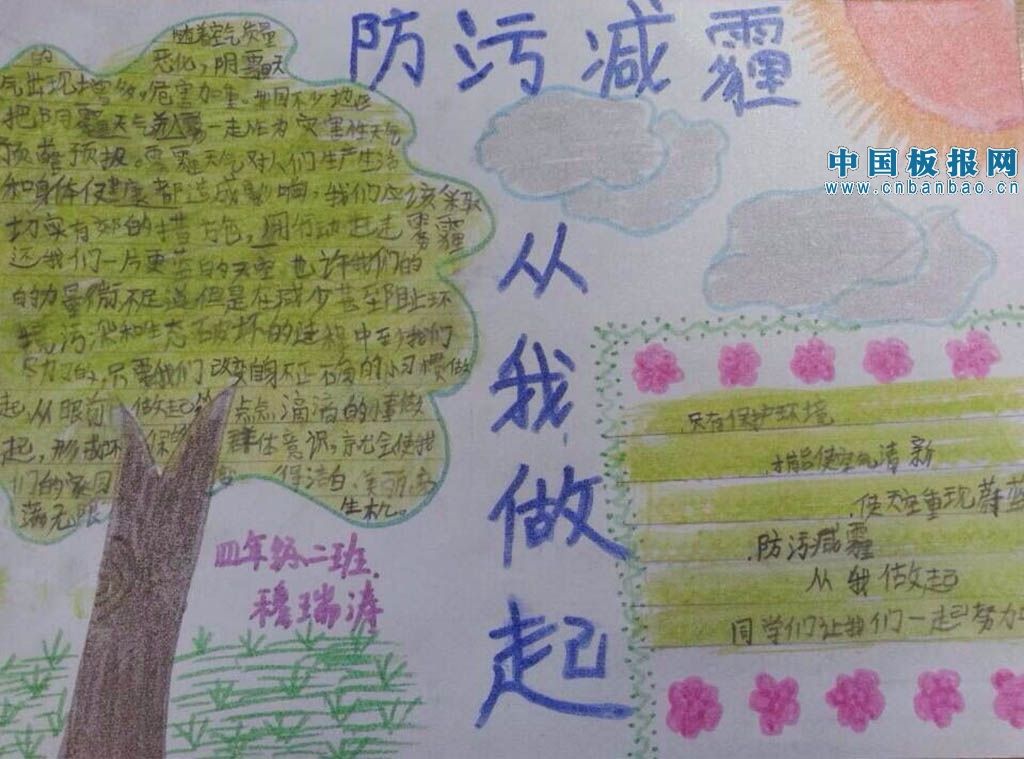 防污减霾
从我做起
中国板报网
www.cnbanbao.cn
随着空气质量
的 恶化，阴霾天
气出现增多，危害加重。我国不少地区
把阴霾天气并雾一起作为灾害性天气
预警预报。雾霾天气，对人们生产生活
和身体健康都 影响，我们应该采取
切实有效的措施，用行动赶走雾霾
还我们一片更蓝的天空 也许我们的
的力量微不足道但是在减少甚至阻止环
境污染和生态破坏的过程中 我们
努力的，只要我们改变自身不正确的小习惯做
起，从眼前做起 点点滴滴的事做
起，形成环保的群体意识，就会使我
们的家园 得洁白、美丽、充
满无限 生机。
四年级二班
穆瑞涛
只有保护环境
才能使空气清新
使天空重现蔚蓝
防污减霾
从我做起
同学们让我们一起努力